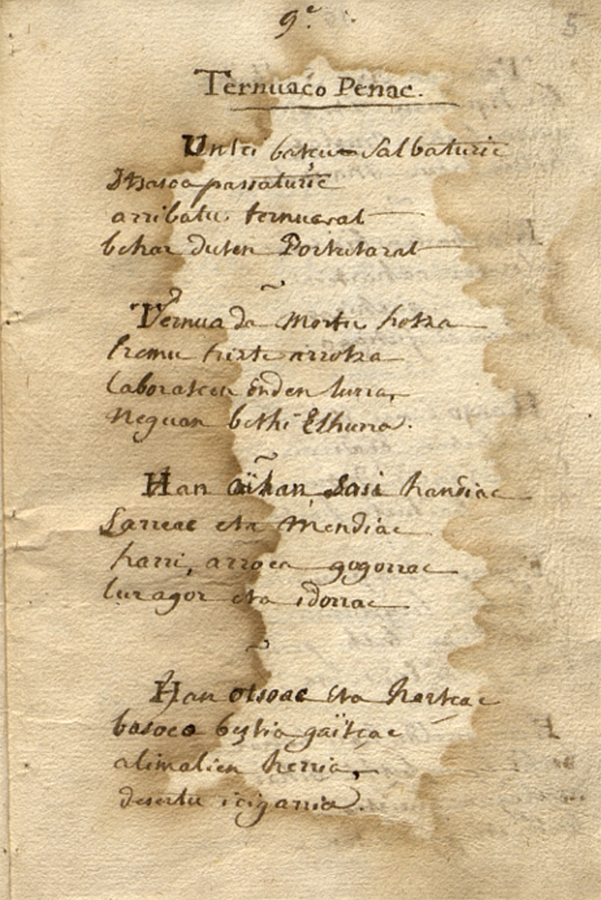 9.e
5
Ternuaco Penac.
Untci batcu Salbaturic
Itsasoa passaturic
arribatu, ternuarat
behar duten Portutarat
Ternua da Mortu hotza
Eremu triste arrotza
Laboratcen ez den lurra,
Neguan bethi Elhurra.
Han oihan, Sasi handiac
Larreac eta Mendiac
harri, arroca gogorrac
lur agor eta idorrac
Han otsoac eta hartçac
basoco bestia gaïtçac
alimalien herria,
desertu icigarria.